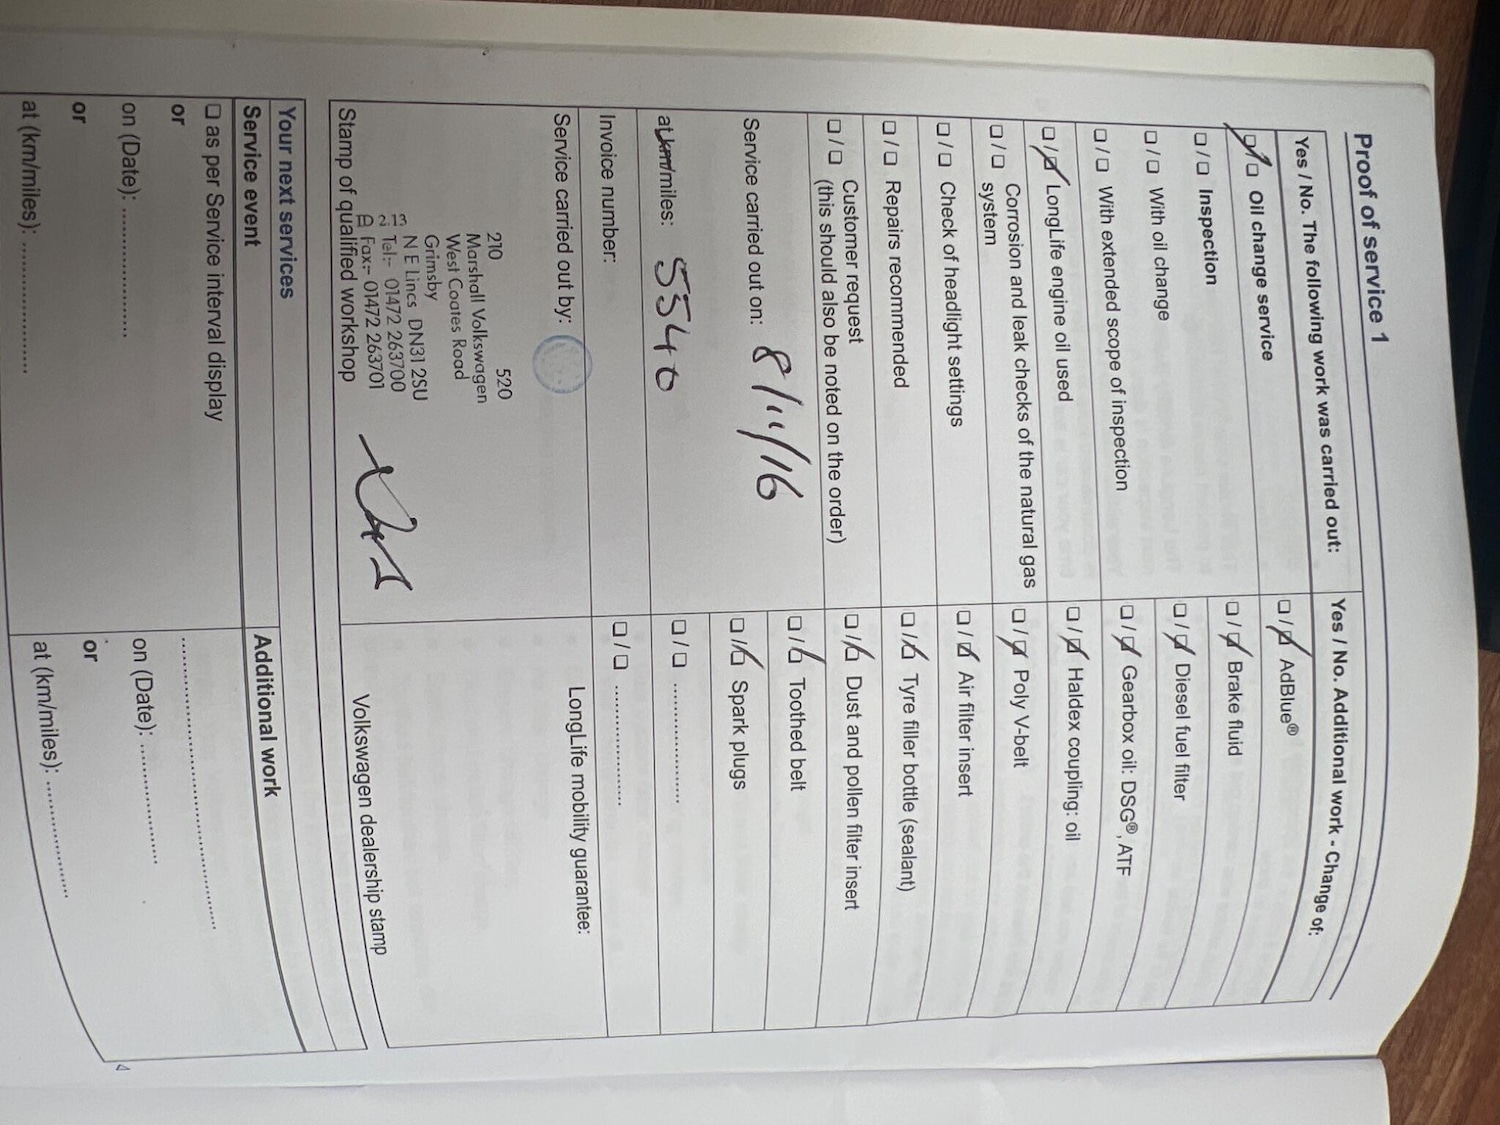 Proof of service 1
Yes / No. The following work was carried out:
☑ / ☐ Oil change service
☐ / ☐ Inspection
☐ / ☐ With oil change
☐ / ☐ With extended scope of inspection
☐ / ☑ LongLife engine oil used
☐ / ☐ Corrosion and leak checks of the natural gas
system
☐ / ☐ Check of headlight settings
☐ / ☐ Repairs recommended
☐ / ☐ Customer request
(this should also be noted on the order)
Service carried out on: 8/11/16
at km/miles: 5540
Invoice number:
Service carried out by:
210 520
Marshall Volkswagen
West Coates Road
Grimsby
N E Lincs DN31 2SU
Tel:- 01472 263700
Fax:- 01472 263701
Stamp of qualified workshop
Yes / No. Additional work - Change of:
☐ / ☑ AdBlue®
☐ / ☑ Brake fluid
☐ / ☑ Diesel fuel filter
☐ / ☑ Gearbox oil: DSG®, ATF
☐ / ☑ Haldex coupling: oil
☐ / ☑ Poly V-belt
☐ / ☑ Air filter insert
☐ / ☑ Tyre filler bottle (sealant)
☐ / ☑ Dust and pollen filter insert
☐ / ☑ Toothed belt
☐ / ☑ Spark plugs
☐ / ☐ ................
☐ / ☐ ................
LongLife mobility guarantee:
Volkswagen dealership stamp
Your next services
Service event
☐ as per Service interval display
or
on (Date): ................
or
at (km/miles): ................
Additional work
................................
on (Date): ................
or
at (km/miles): ................